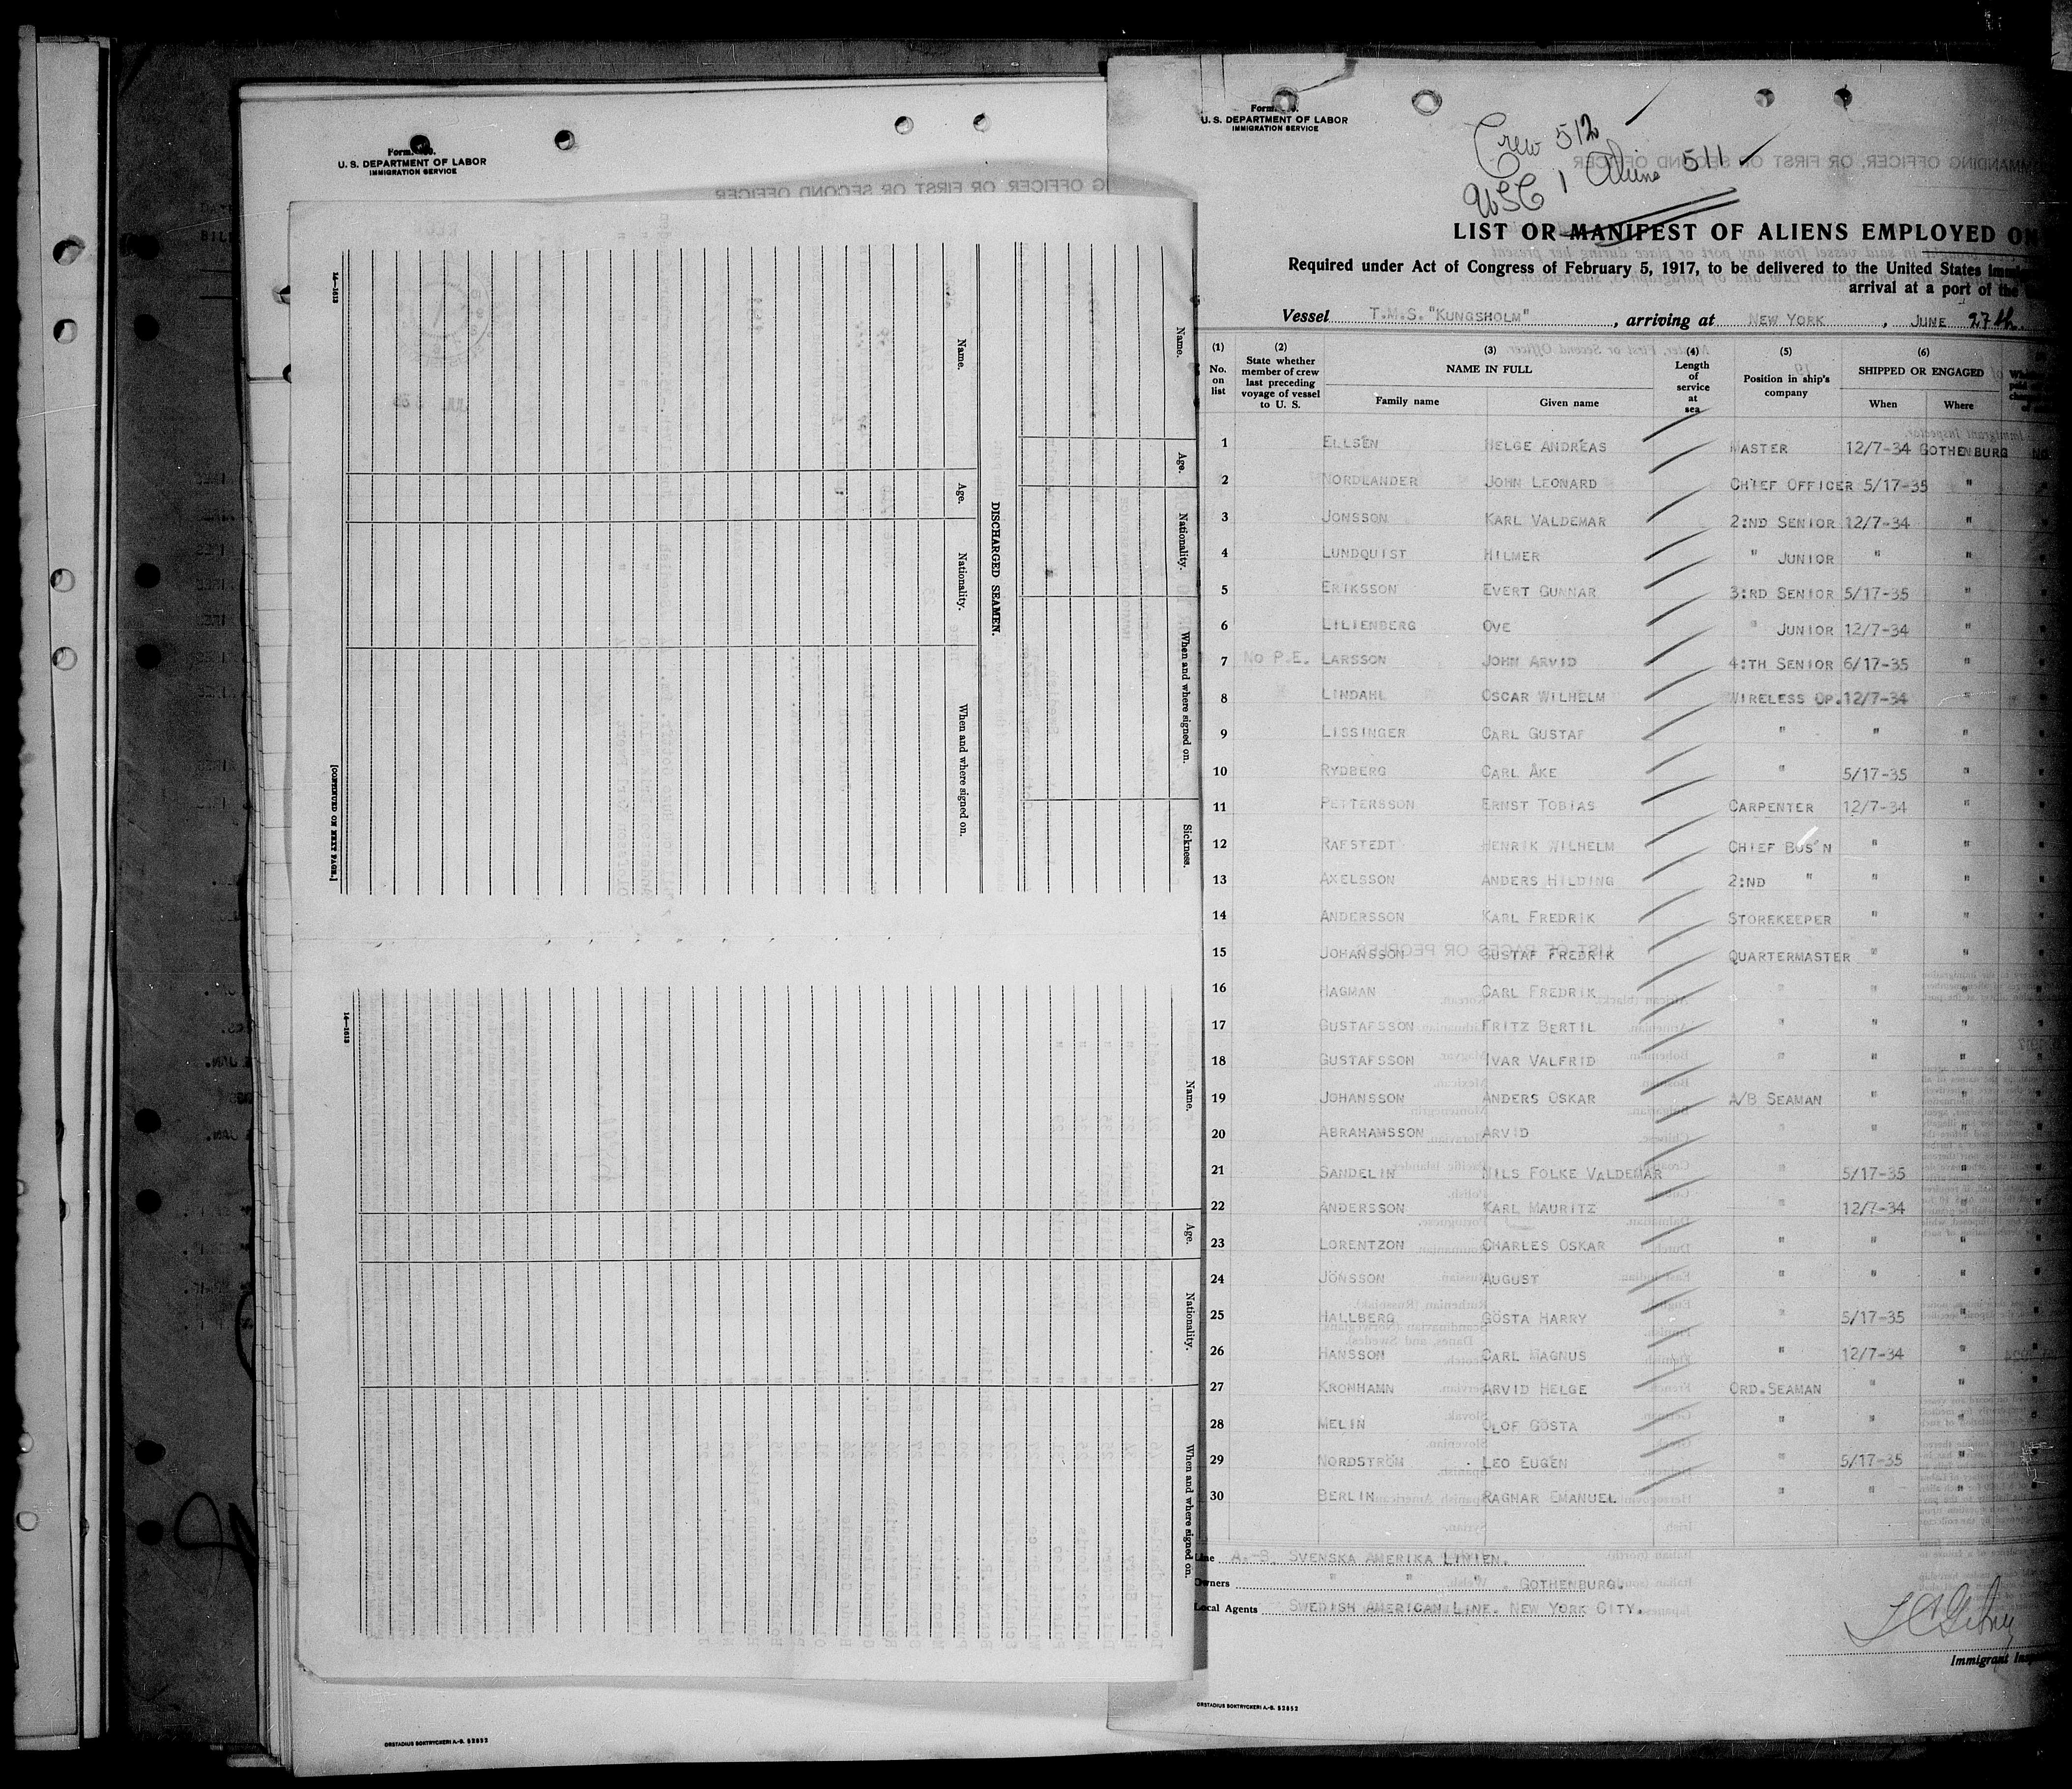 U. S. DEPARTMENT OF LABOR
IMMIGRATION SERVICE
14—1613
Name.
Age.
Nationality.
When and where signed on.
Sickness.
DISCHARGED SEAMEN.
Name.
Age.
Nationality.
When and where signed on.
[CONTINUED ON NEXT PAGE.]
14—1613
Name.
Age.
Nationality.
When and where signed on.
ORSTADIUS BOKTRYCKERI A.-B. 52852
U. S. DEPARTMENT OF LABOR
IMMIGRATION SERVICE
Crew 512
USC 1 Aliens 511
LIST OR MANIFEST OF ALIENS EMPLOYED ON
Required under Act of Congress of February 5, 1917, to be delivered to the United States
arrival at a port of the
Vessel T.M.S. "KUNGSHOLM", arriving at NEW YORK, JUNE 27th.
(1) No. on list
(2) State whether member of crew last preceding voyage of vessel to U. S.
(3) NAME IN FULL
Family name Given name
(4) Length of service at sea
(5) Position in ship's company
(6) SHIPPED OR ENGAGED
When Where
1 ELLSÉN HELGE ANDREAS MASTER 12/7-34 GOTHENBURG NO
2 NORDLANDER JOHN LEONARD CHIEF OFFICER 5/17-35 "
3 JONSSON KARL VALDEMAR 2:ND SENIOR 12/7-34 "
4 LUNDQUIST HILMER " JUNIOR " "
5 ERIKSSON EVERT GUNNAR 3:RD SENIOR 5/17-35 "
6 LILIENBERG OVE " JUNIOR 12/7-34 "
7 NO P.E. LARSSON JOHN ARVID 4:TH SENIOR 6/17-35 "
8 LINDAHL OSCAR WILHELM WIRELESS OP. 12/7-34 "
9 LISSINGER CARL GUSTAF " " "
10 RYDBERG CARL ÅKE " 5/17-35 "
11 PETTERSSON ERNST TOBIAS CARPENTER 12/7-34 "
12 RAFSTEDT HENRIK WILHELM CHIEF BOS'N " "
13 AXELSSON ANDERS HILDING 2:ND " " "
14 ANDERSSON KARL FREDRIK STOREKEEPER " "
15 JOHANSSON GUSTAF FREDRIK QUARTERMASTER " "
16 HAGMAN CARL FREDRIK " " "
17 GUSTAFSSON FRITZ BERTIL " " "
18 GUSTAFSSON IVAR VALFRID " " "
19 JOHANSSON ANDERS OSKAR A/B SEAMAN " "
20 ABRAHAMSSON ARVID " " "
21 SANDELIN NILS FOLKE VALDEMAR " 5/17-35 "
22 ANDERSSON KARL MAURITZ " 12/7-34 "
23 LORENTZON CHARLES OSKAR " " "
24 JÖNSSON AUGUST " " "
25 HALLBERG GÖSTA HARRY " 5/17-35 "
26 HANSSON CARL MAGNUS " 12/7-34 "
27 KRONHAMN ARVID HELGE ORD.SEAMAN " "
28 MELIN OLOF GÖSTA " " "
29 NORDSTRÖM LEO EUGEN " 5/17-35 "
30 BERLIN RAGNAR EMANUEL " " "
Line A.-B. SVENSKA AMERIKA LINIEN.
Owners " " " . GOTHENBURG.
Local Agents SWEDISH AMERICAN LINE. NEW YORK CITY.
Immigrant
ORSTADIUS BOKTRYCKERI A.-B. 52852